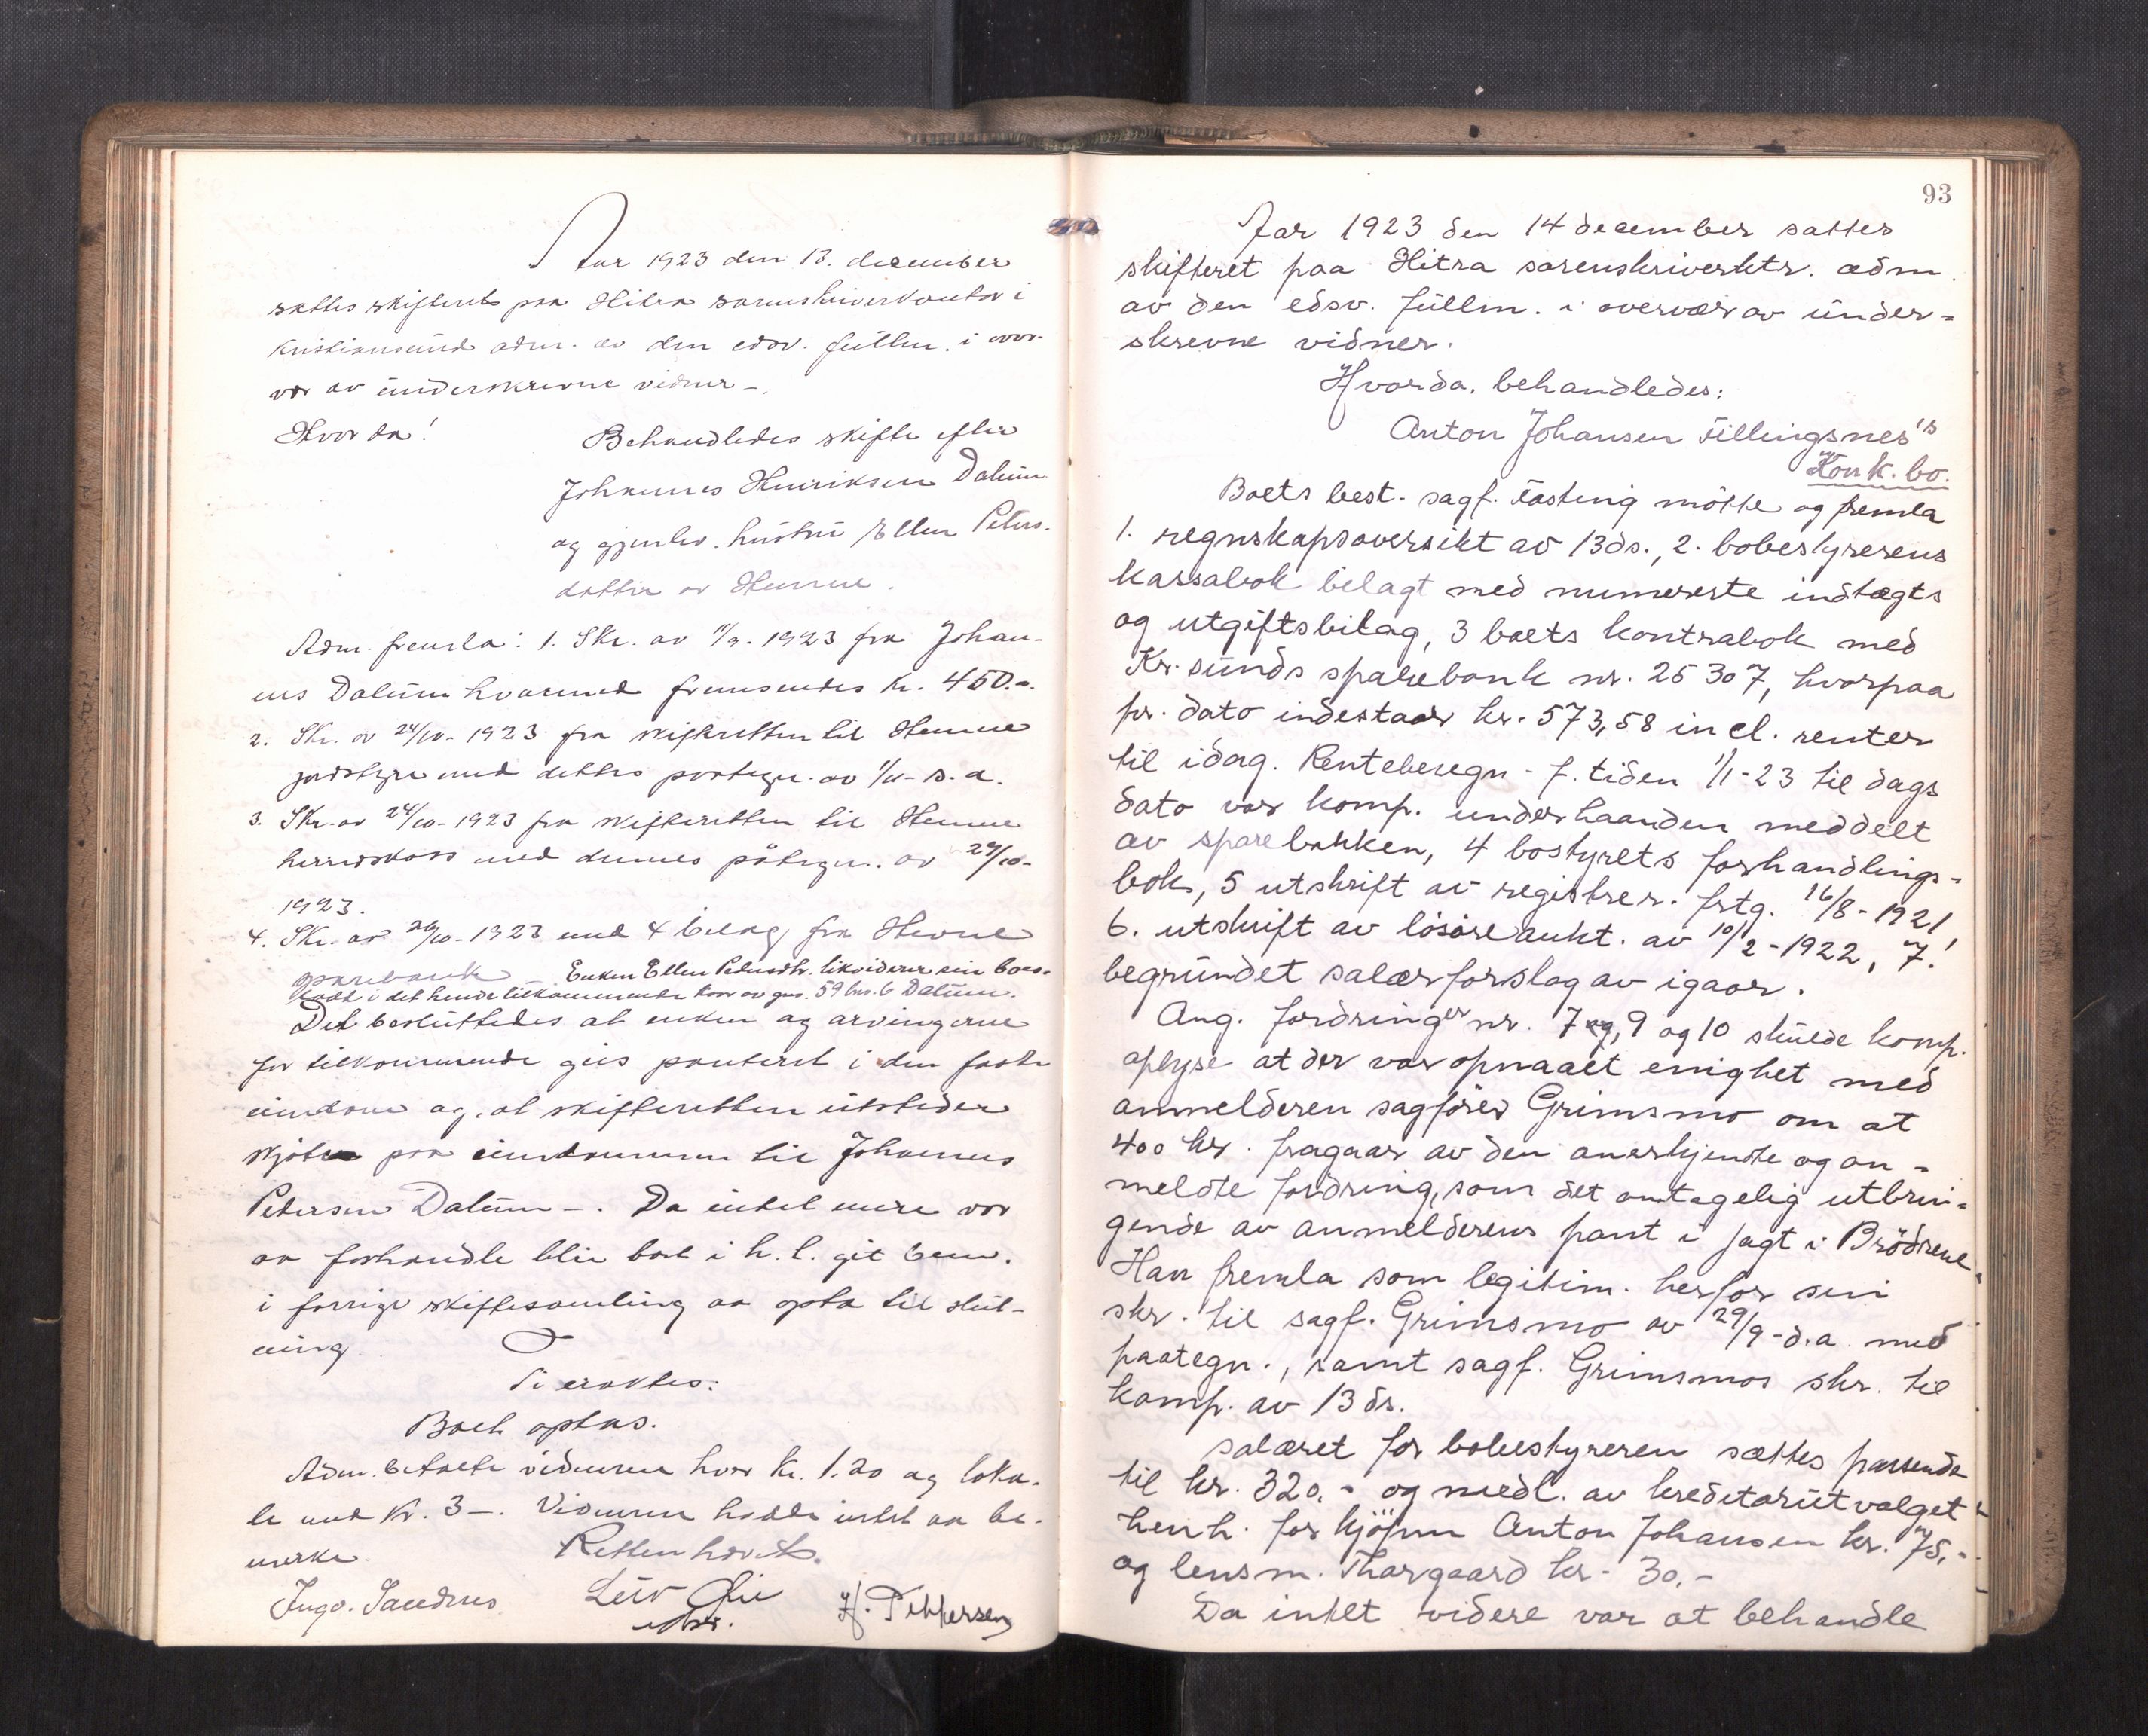 Aar 1923 den 13. december
sattes skifteret paa Hitra sorenskriverkontor i
Kristiansund adm. av den edsv. fuldm. i over-
vær av underskrevne vidner –.
Hvor da!
Behandledes skifte efter
Johannes Henriksen Dalum
og gjenlev. hustru Ellen Peters-
datter av Hemne.
Adm. fremla: 1. Skr. av 1923 fra Johan-
nes Dalum hvormed fremsendes kr. 450.-.
2. Skr. av 24/10 - 1923 fra skifteretten til Hemne
jordstyre med dettes paategn. av s. a.
3. Skr. av 24/10 - 1923 fra skifteretten til Hemne
herredskass med dennes påtegn. av 29/10-
1923.
4. Skr. av 26/10 - 1923 med 4 bilag fra Hevne
sparebank – Enken Ellen Petersdtr. likviderer sin boes-
lodd i det hende tilkommende kaar av gnr. 59 bnr. 6 Dalum.
Det besluttedes at enken og arvingerne
for tilkommende gis panteret i den faste
eiendom og at skifteretten utsteder
skjöte paa eiendommen til Johannes
Petersen Dalum –. Da intet mere var
aa forhandle blir boet i h. t. git bem.
i forrige skiftesamling aa opta til slut-
ning
Ti eraktes:
Boet optas.
Adm. betalte vidnerne hver kr. 1.20 og loka-
le med kr. 3 –. Vidnerne hadde intet aa be-
merke.
Retten hævet.
Ingv. Sandnes Leiv H. Pettersen
93
Aar 1923 den 14 december sattes
skifteret paa Hitra sorenskriverktr. adm.
av den edsv. fullm. i overvær av under-
skrevne vidner.
Hvorda, behandledes:
Anton Johansen Fillingsnes's
Konk. bo.
Boets best. sagf. Fasting mötte og fremla
1. regnskapsoversikt av 13 ds., 2. bobestyrerens
kassabok bilagt med numererte indtægts
og utgiftsbilag, 3 boets kontrabok med
Kr. sunds sparebank nr. 25307, hvorpaa
pr. dato indestaar kr. 573,58 incl. renter
til idag. Renteberegn - f. tiden 1/1 - 23 til dags
dato var komp. underhaanden meddelt
av sparebanken, 4 bostyrets forhandlings-
bok, 5 utskrift av registrer. frtg. 16/8 - 1921
6. utskrift av lösöreaukt. av 10/2 - 1922, 7!
begrundet salærforslag av igaar.
Ang. fordringer nr. 7 og, 9 og 10 skulde komp.
oplyse at der var opnaaet enighet med
anmelderen sagförer Grimsmo om at
400 kr. fragaar av den anerkjente og an-
meldte fordring, som det antagelig utbrin-
gende av anmelderens pant i jagt i Brödrene
Han fremla som legitim. herfor sin
skr. til sagf. Grimsmo av 29/9 - d.a. med
paategn., samt sagf. Grimsmos skr. til
komp. av 13 ds.
Salæret for bobestyreren sættes passende
til kr. 320.- og medl. av kreditorutvalget
henh. for kjöpm Anton Johansen kr. 75.-
og lensm. Thorgaard kr. 30.-
Da intet videre var at behandle